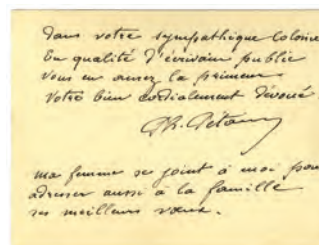 dans votre sympathique Colonie
En qualité d'écrivain public
vous en aurez la primeur
Votre bien cordialement dévoué
Ph. Pétain
ma femme se joint à moi pour
adresser aussi à la famille
ses meilleurs vœux.